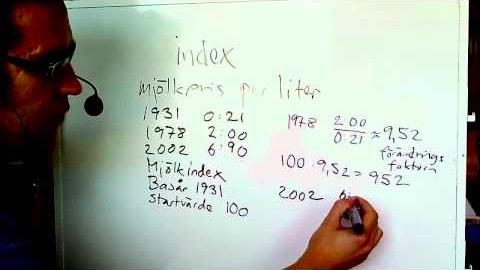 index
mjölkpris per liter
1931 0:21
1978 2:00
2002 6:90
Mjölkindex
Basår 1931
Startvärde 100
1978 2:00/0:21 ≈ 9,52
förändrings
faktorn
100 · 9,52 = 952
2002 6: